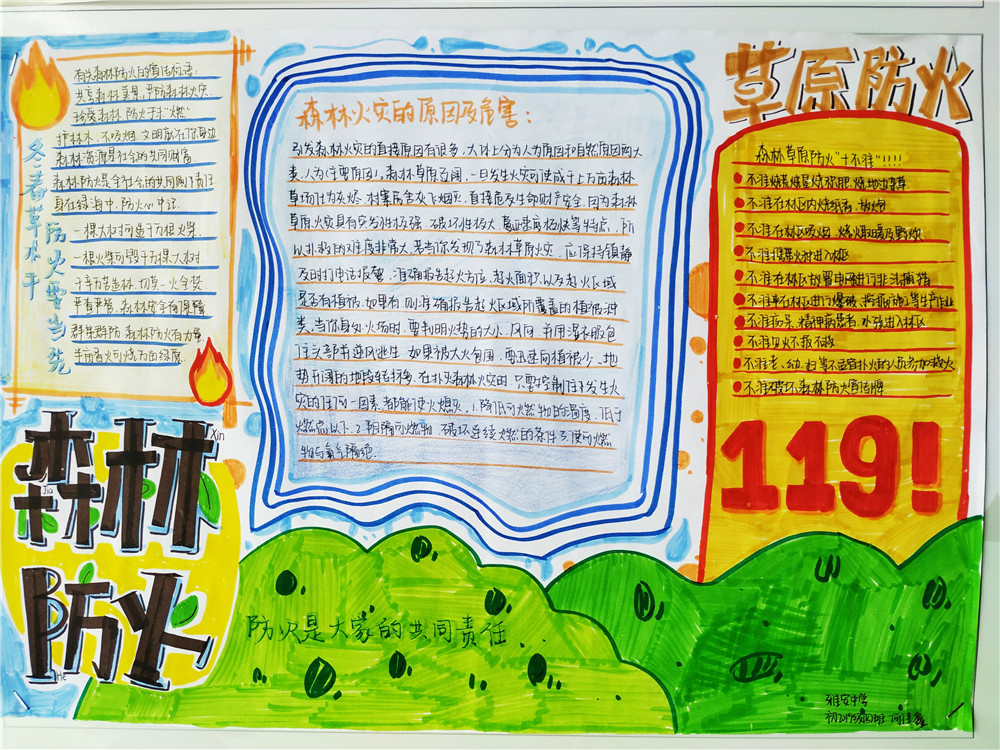 有关森林防火的宣传标语:
共享森林美景,严防森林火灾
珍爱森林 防火于未"燃"
护林林,不吸烟,文明就在你身边
森林资源是社会的共同财富
森林防火是全社会的共同责任
身在绿海中,防火心中记
一棵大树可造千万根火柴
一根火柴可毁千万棵大树
千辛万苦造林,切莫一火全焚
严看严管,森林安全有保障
群策群防 森林防火有力量
星火可烧万亩绿原
冬春草木干
防火雪当先
森林
防火
Xin
Jia
He
森林火灾的原因及危害:
引发森林火灾的直接原因有很多,大体上分为人为原因和自然原因两大
类,人为住要原因。森林草原辽阔,一旦发生火灾可使成千上万亩森林
草场化为灰烬,村寨房舍灰飞烟灭,直接危及生命财产安全,因为森林
草原火灾具有突发性极强、破坏性极大、蔓延速度极快等特点,所
以扑救的难度非常大,若当你发现了森林草原火灾,应保持镇静
及时打电话报警,准确报告起火方位,起火面积,以及起火区域
是否有植被,如果有,则准确报告起火区域所覆盖的植被种
类,当你身处火场时,要判明火势的大小、风向,并用湿衣服包
住头部,逆风逃生,如果被大火包围,要迅速向植被少、地
势开阔的地段转移。在扑灭森林火灾时,只要控制住了发生火
灾的任何一因素,都能使火熄灭,1.降低可燃物的温度,低于
燃点以下,2.阻隔可燃物,破坏连续燃的条件 3.使可燃
物与氧气隔绝.
草原防火
森林草原防火"十不准"!!!!
不准烧荒烧垦烧灰积肥,烧地边草
不准在林区内烧纸钱,放炮
不准在林区吸烟、烧火取暖及野炊
不准携带火种进入林区
不准在林区放置电网进行非法捕猎
不准在林区进行爆破、等生产作业
不准痴呆、精神病患者、小孩进入林区
不准见火不报不救
不准老、幼、妇等不适宜扑火的人员参加救火
不准破坏森林防火宣传牌
119!
防火是大家的共同责任.
雅安中学